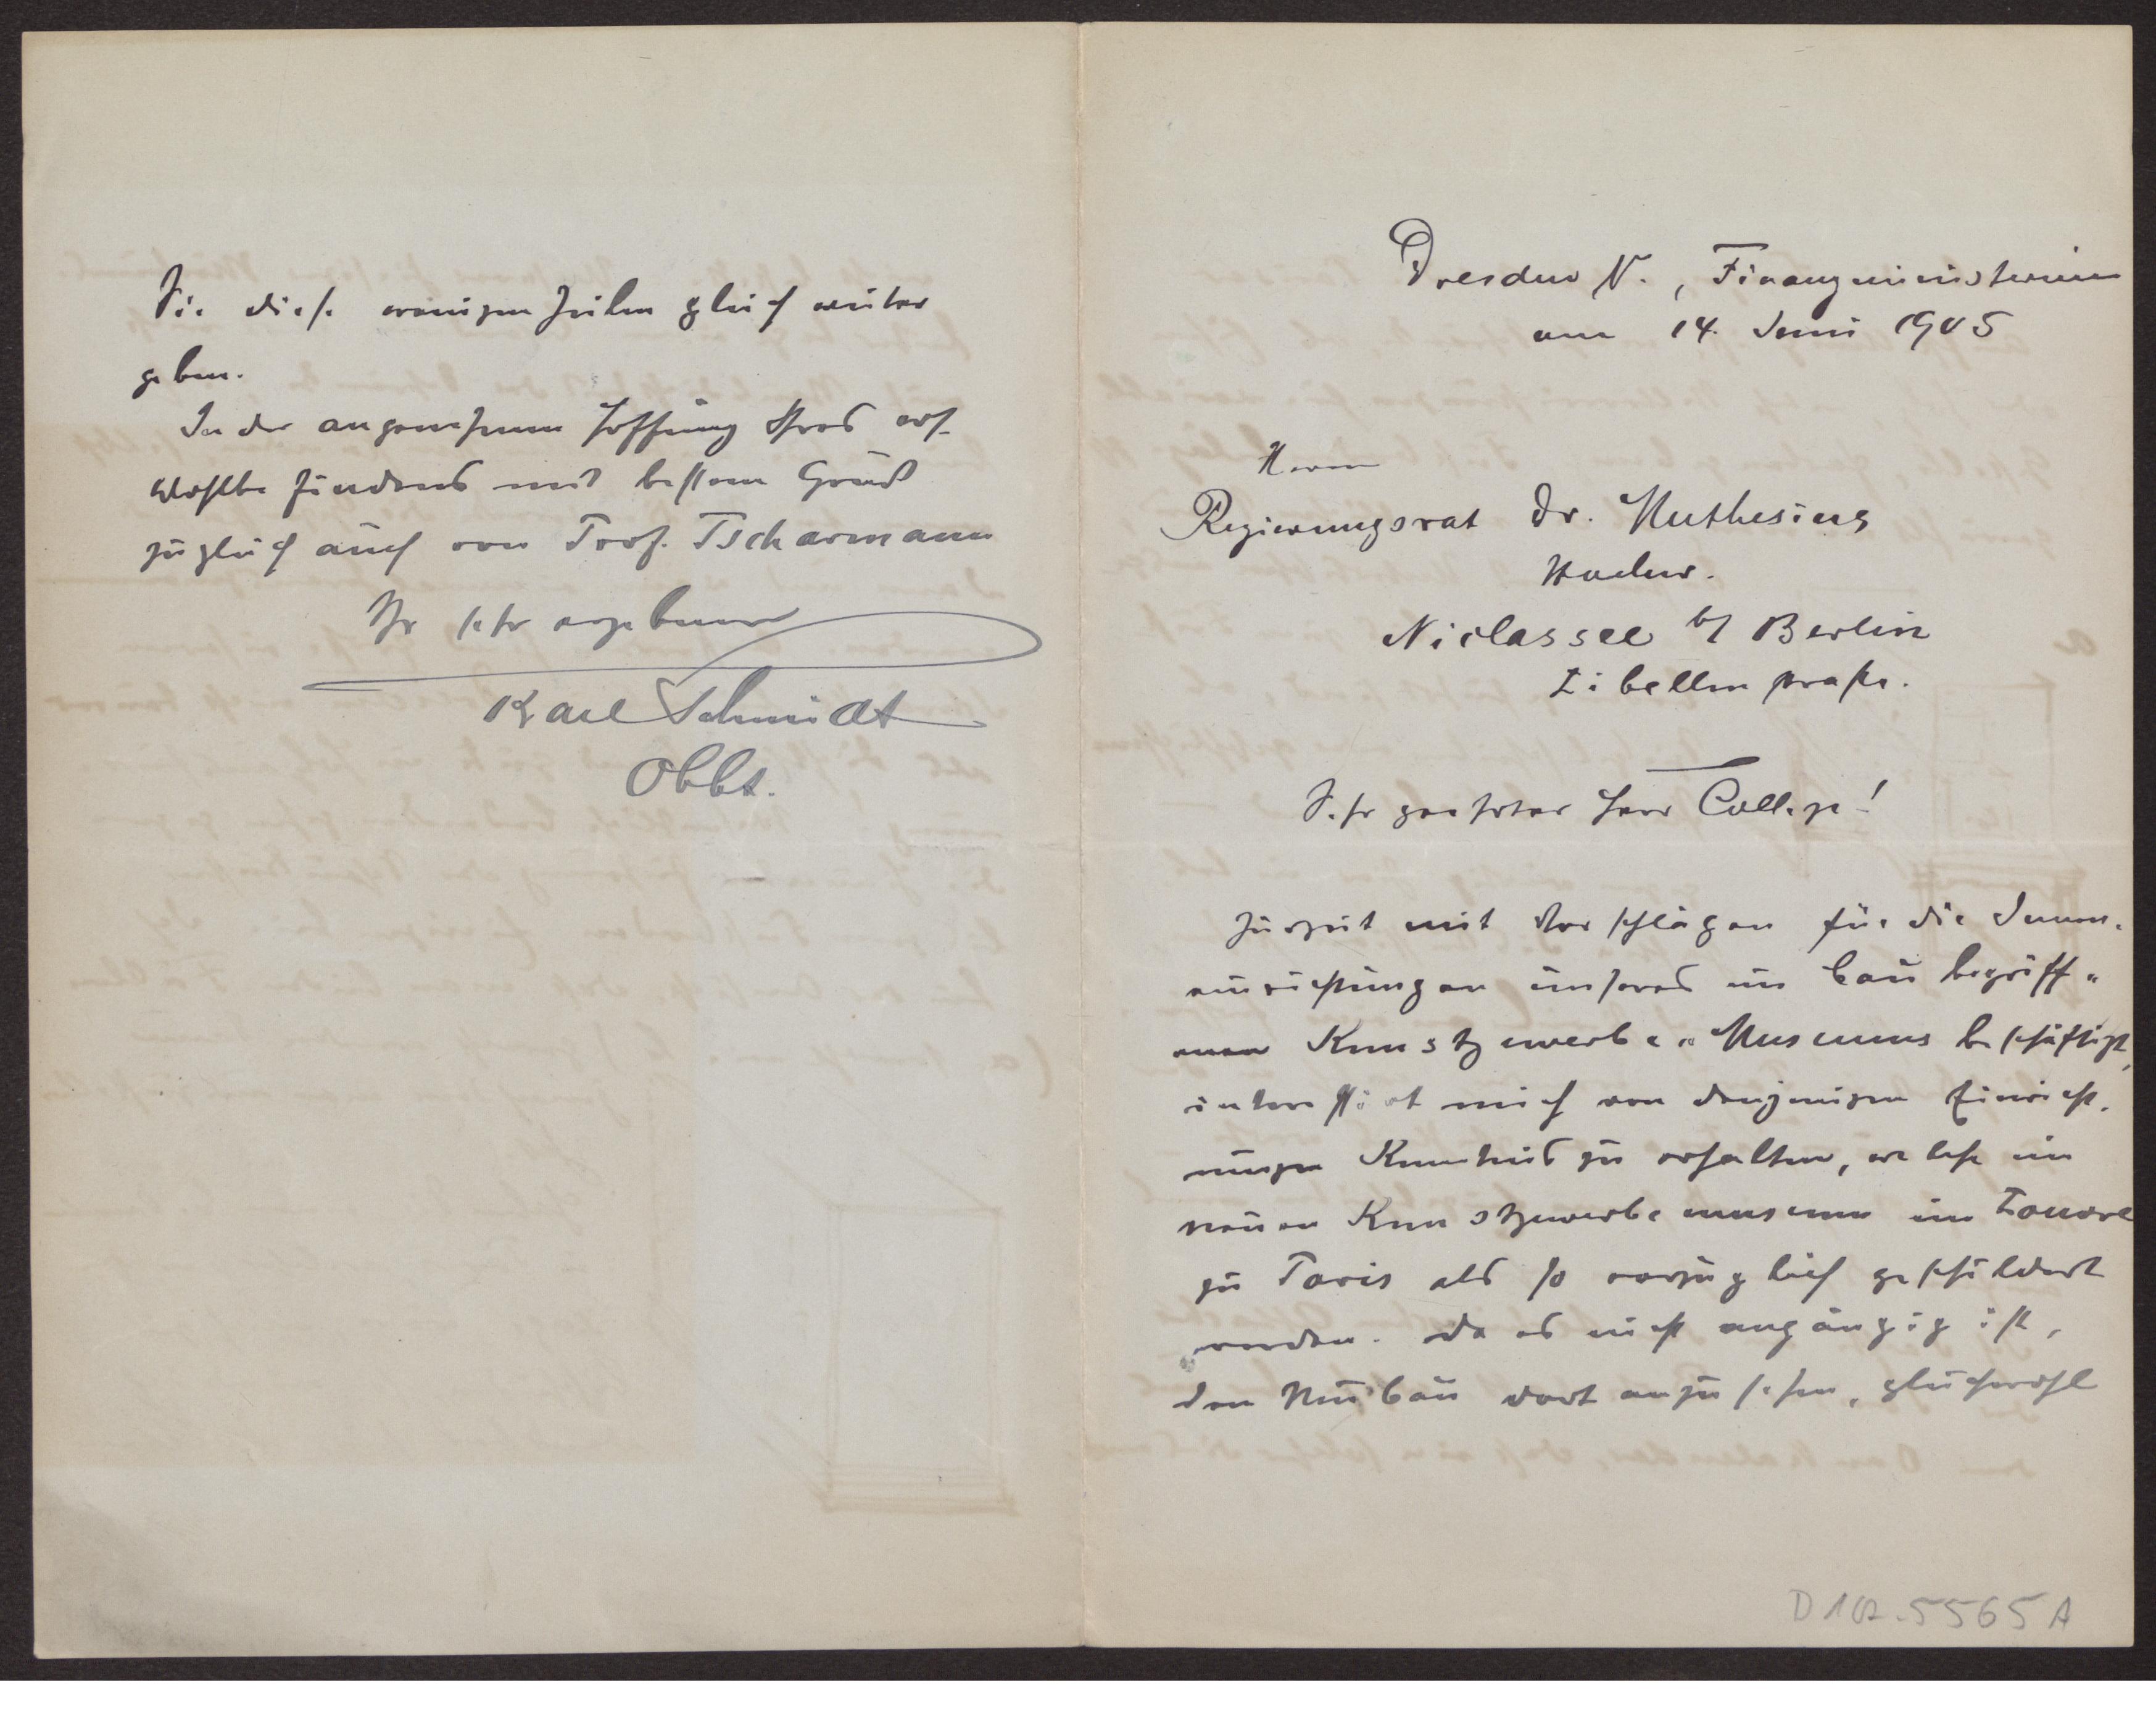 Dresden N., Finanzministerium
am 14. Juni 1905
Herrn
Regierungsrat Dr. Muthesius
Hochw.
Niclassee b/ Berlin
Libellenstraße.
Sehr geehrter Herr College!
Zurzeit mit Vorschlägen für die Innen-
einrichtungen unseres im Bau begriff-
enen Kunstgewerbe-Museums beschäftigt,
interessirt mich von denjenigen Einricht-
ungen Kenntnis zu erhalten, welche im
neuen Kunstgewerbemuseum im Louvre
zu Paris als so vorzüglich geschildert
werden. Da es nicht angängig ist,
den Neubau dort anzusehen, gleichwohl
D 102-5565 A
Sie diese wenigen Zeilen gleich weiter
geben.
In der angenehmen Hoffnung Ihres
Wohlbefindens mit bestem Gruß
zugleich auch von Prof. Tscharmann
Ihr sehr ergebener
Karl Schmidt
Obbt.